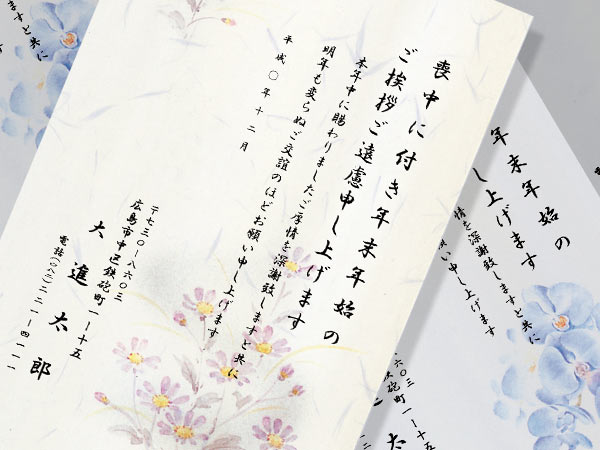 喪中に付き年末年始の
ご挨拶ご遠慮申し上げます
本年中に賜わりましたご厚情を深謝致しますと共に
明年も変らぬご交誼のほどお願い申し上げます
平成〇年十二月
〒七三〇-八六〇三
広島市中区鉄砲町一-十五
大進太郎
電話(〇八二)二二一-四一一一
年末年始の
し上げます
情を深謝致しますと共に
願い申し上げます
六〇三
鉄砲町一-十五
大
ますと共に